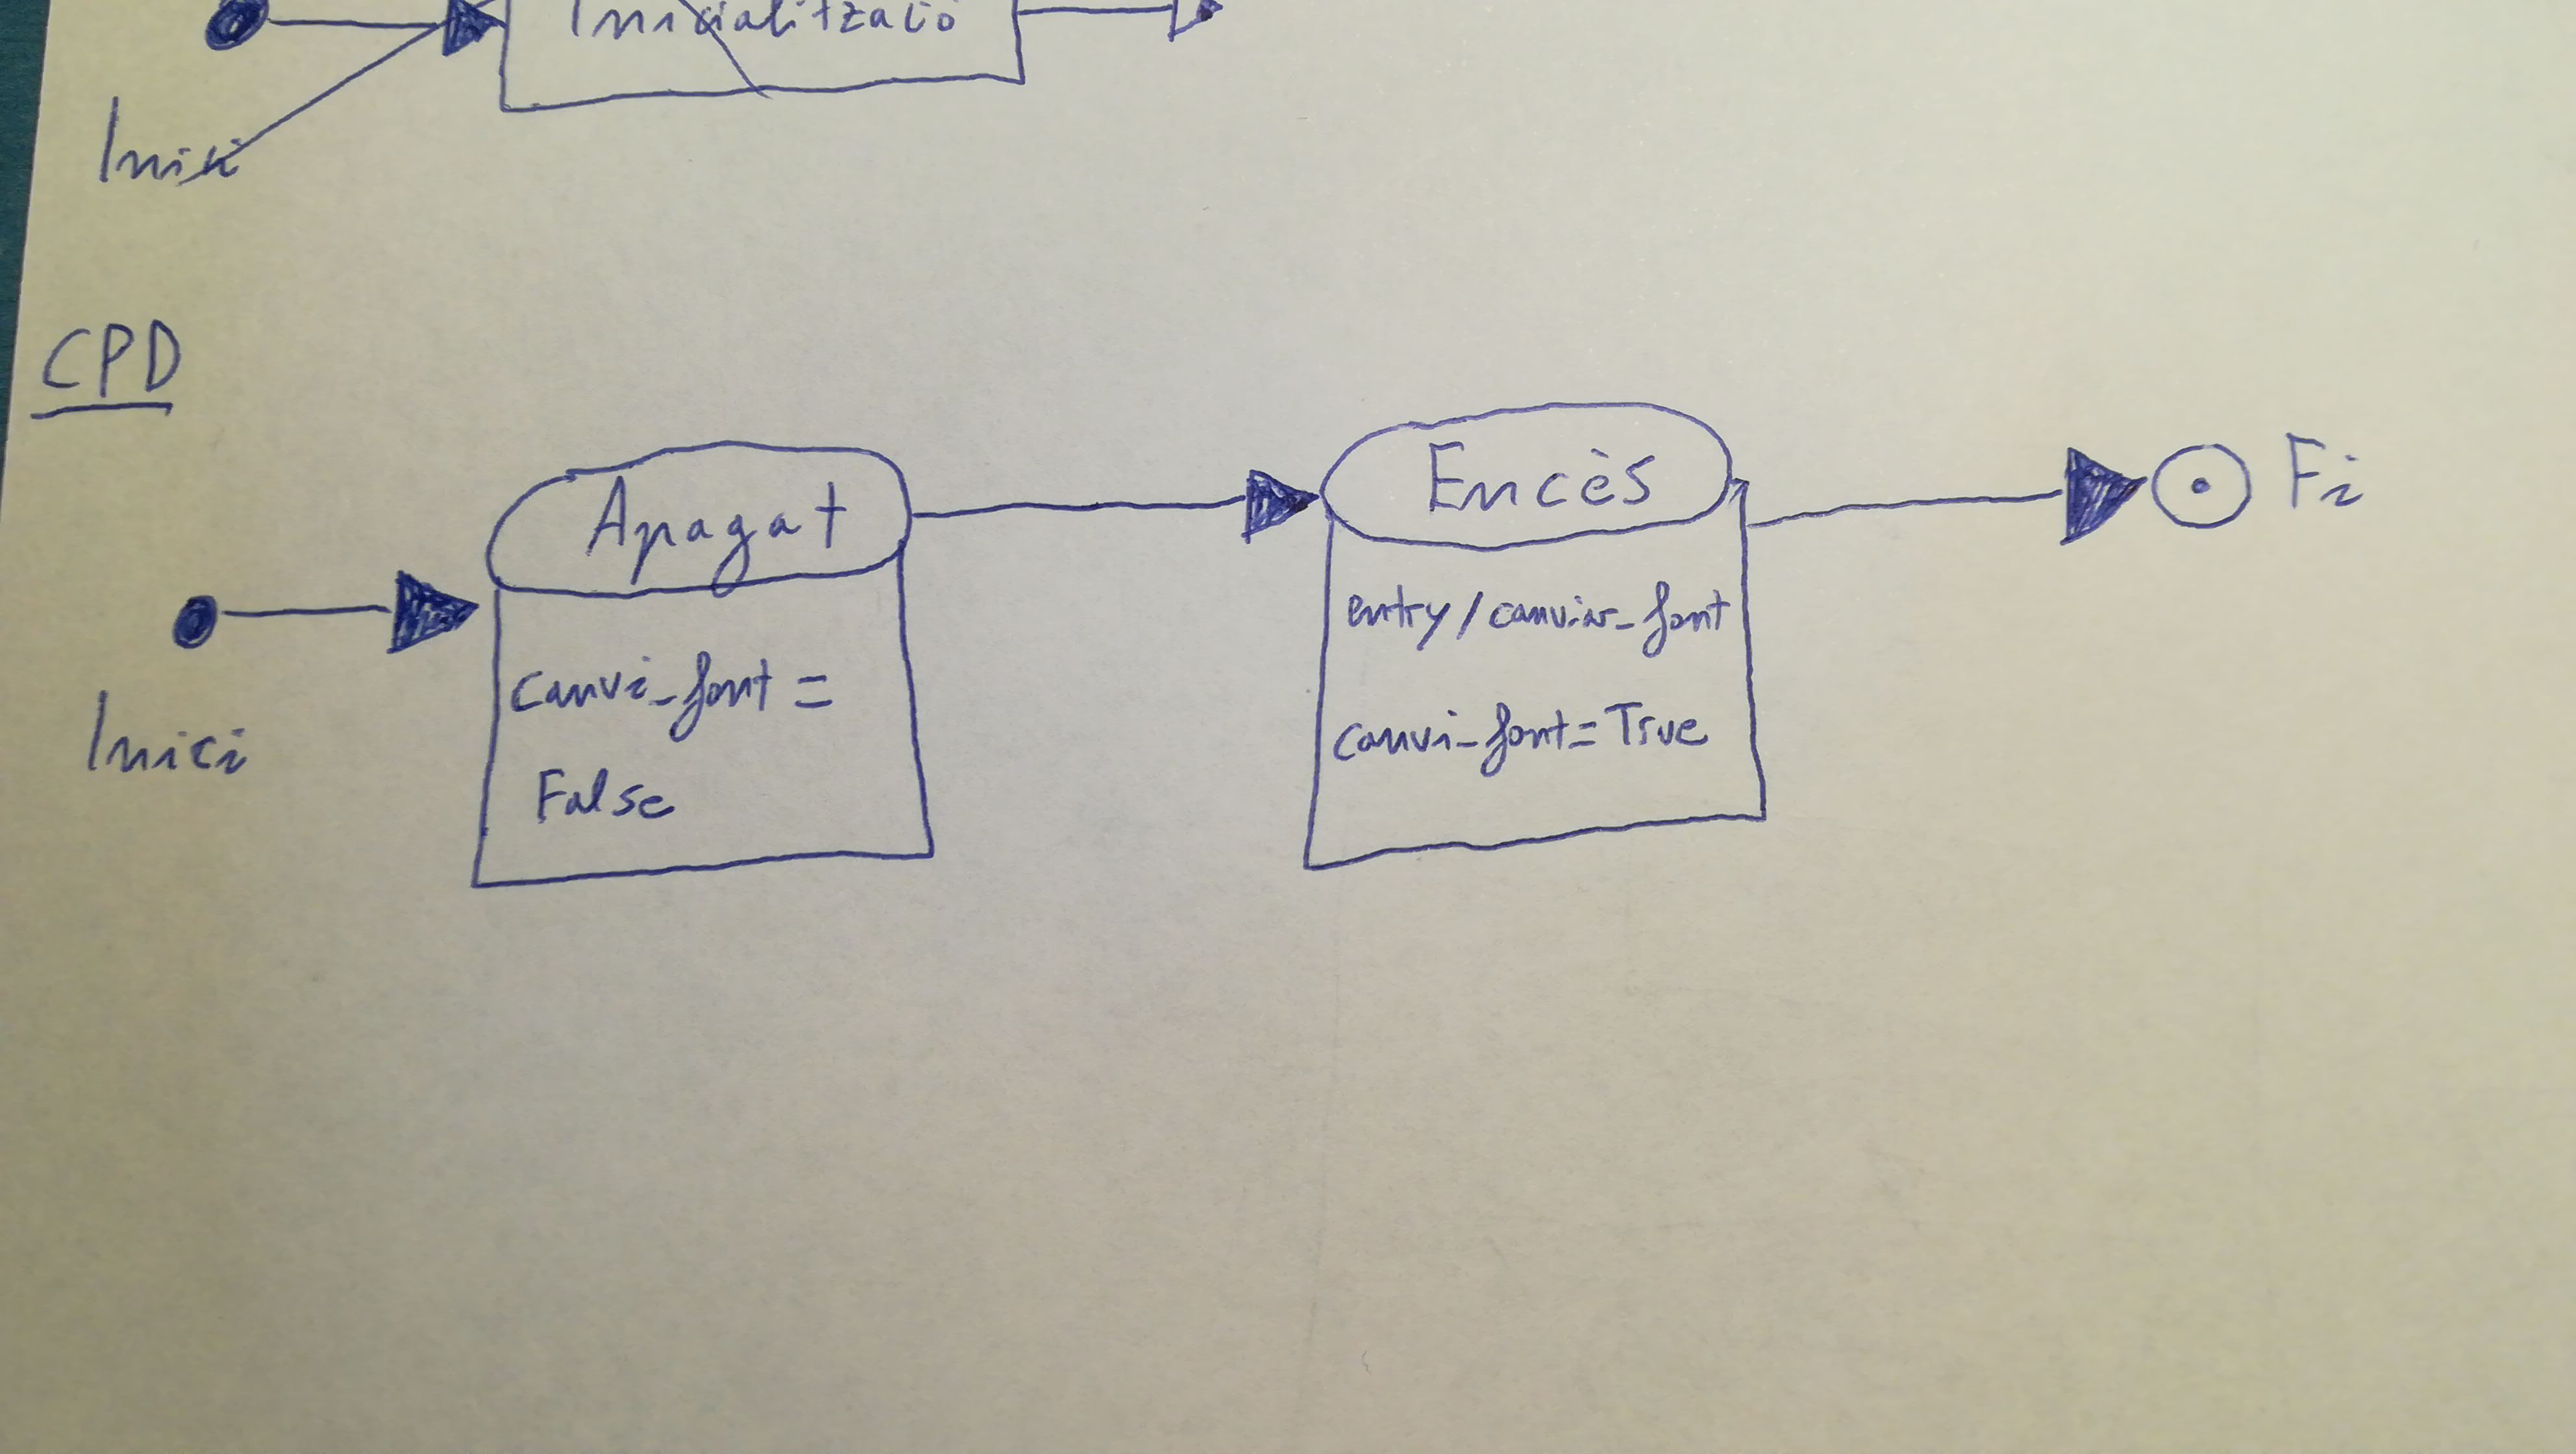 Inicialització
Inici
CPD
Apagat
canvi_font =
False
Encès
entry / canviar_font
canvi_font = True
Fi
Inici